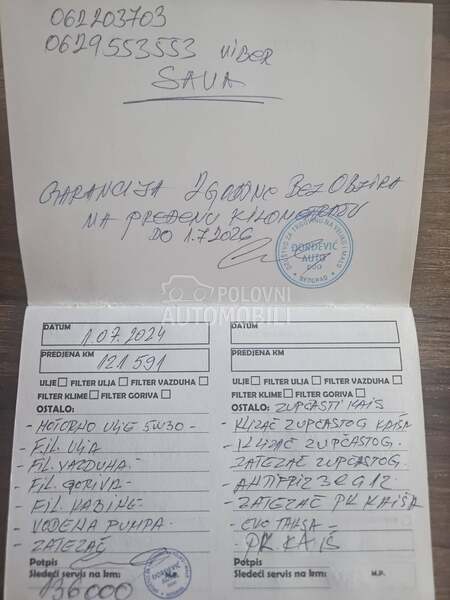 062203703
0629553553 VIBER
SAVA
GARANCIJA 2 GODINE BEZ OBZIRA
NA PREĐENU KILOMETRAŽU
DO 1.7.2026
ĐORĐEVIĆ
AUTO
DOO
BEOGRAD
POLOVNI
AUTOMOBILI
DATUM 1.07.2024
PREDJENA KM 121.591
ULJE FILTER ULJA FILTER VAZDUHA
FILTER KLIME FILTER GORIVA
OSTALO:
- MOTORNO ULJE 5W30 -
- FIL. ULJA
- FIL. VAZDUHA
- FIL. GORIVA -
- FIL. KABINE -
- VODENA PUMPA -
- ZATEZAČ
Potpis M.P.
Sledeći servis na km:
156000
DATUM
PREDJENA KM
ULJE FILTER ULJA FILTER VAZDUHA
FILTER KLIME FILTER GORIVA
OSTALO: ZUPČASTI KAIŠ
- KLIZAČ ZUPČASTOG KAIŠA
- KLIZAČ ZUPČASTOG
- ZATEZAČ ZUPČASTOG
- ANTIFRIZ G12
- ZATEZAČ PK KAIŠA
- EKO TAKSA -
- PK KAIŠ
Potpis
Sledeći servis na km: M.P.